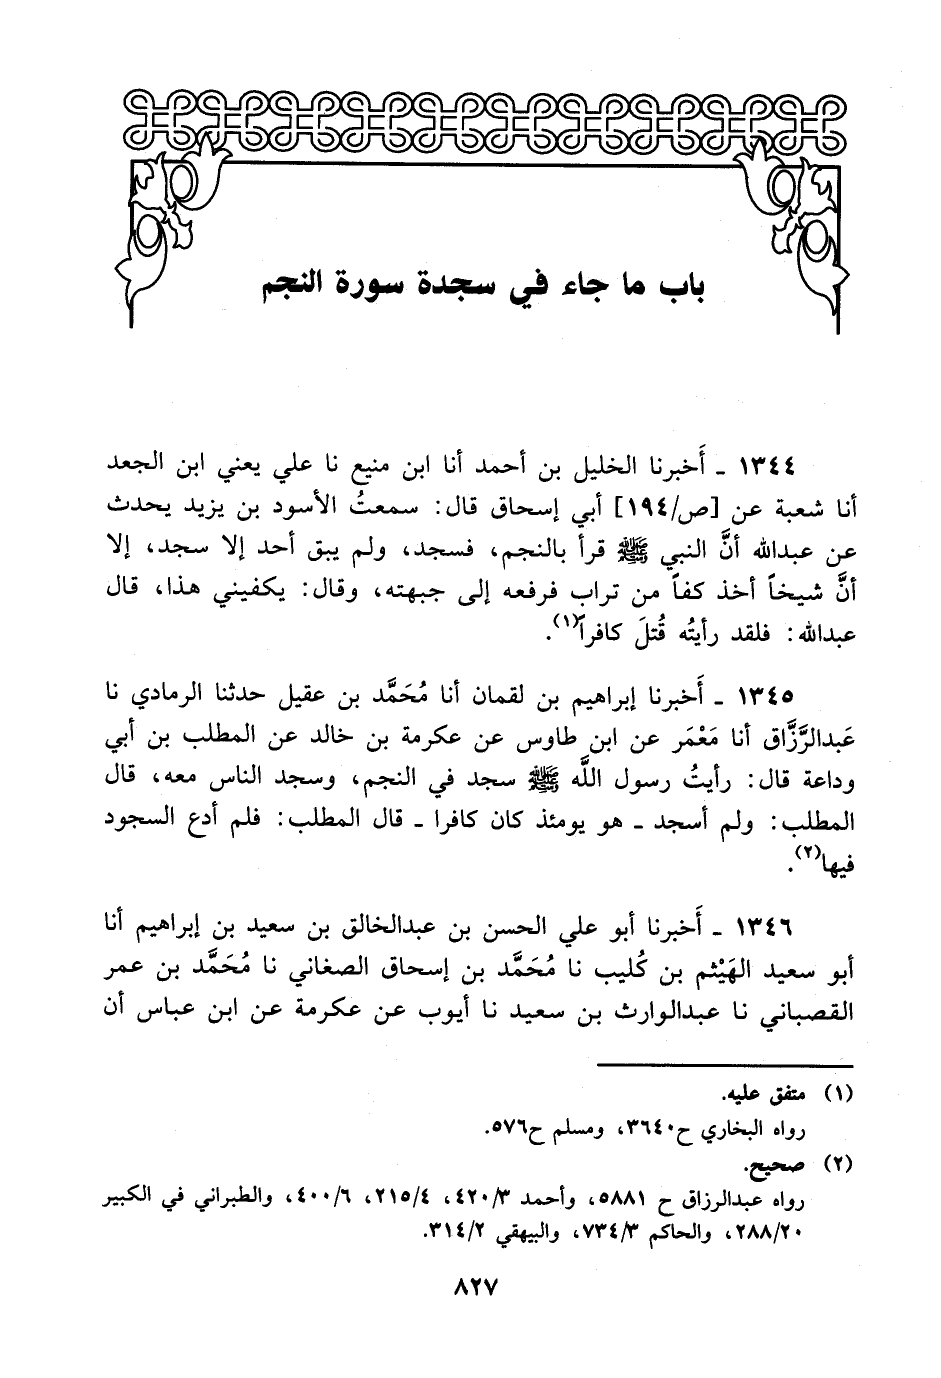 باب ما جاء في سجدة سورة النجم
١٣٤٤ ـ أَخبرنا الخليل بن أحمد أنا ابن منيع نا علي يعني ابن الجعد
أنا شعبة عن [ص/١٩٤] أبي إسحاق قال: سمعتُ الأسود بن يزيد يحدث
عن عبدالله أنَّ النبي ﷺ قرأ بالنجم، فسجد، ولم يبق أحد إلا سجد، إلا
أنَّ شيخاً أخذ كفاً من تراب فرفعه إلى جبهته، وقال: يكفيني هذا، قال
عبدالله: فلقد رأيتُه قُتلَ كافراً(١).
١٣٤٥ ـ أَخبرنا إبراهيم بن لقمان أنا مُحَمَّد بن عقيل حدثنا الرمادي نا
عَبدالرَّزَّاق أنا مَعْمَر عن ابن طاوس عن عكرمة بن خالد عن المطلب بن أبي
وداعة قال: رأيتُ رسول اللَّه ﷺ سجد في النجم، وسجد الناس معه، قال
المطلب: ولم أسجد ـ هو يومئذ كان كافرا ـ قال المطلب: فلم أدع السجود
فيها(٢).
١٣٤٦ ـ أَخبرنا أبو علي الحسن بن عبدالخالق بن سعيد بن إبراهيم أنا
أبو سعيد الهَيْثم بن كُليب نا مُحَمَّد بن إسحاق الصغاني نا مُحَمَّد بن عمر
القصباني نا عبدالوارث بن سعيد نا أيوب عن عكرمة عن ابن عباس أن
(١) متفق عليه.
رواه البخاري ح٣٦٤٠، ومسلم ح٥٧٦.
(٢) صحيح.
رواه عبدالرزاق ح ٥٨٨١، وأحمد ٤٢٠/٣، ٢١٥/٤، ٤٠٠/٦، والطبراني في الكبير
٢٨٨/٢٠، والحاكم ٧٣٤/٣، والبيهقي ٣١٤/٢.
٨٢٧